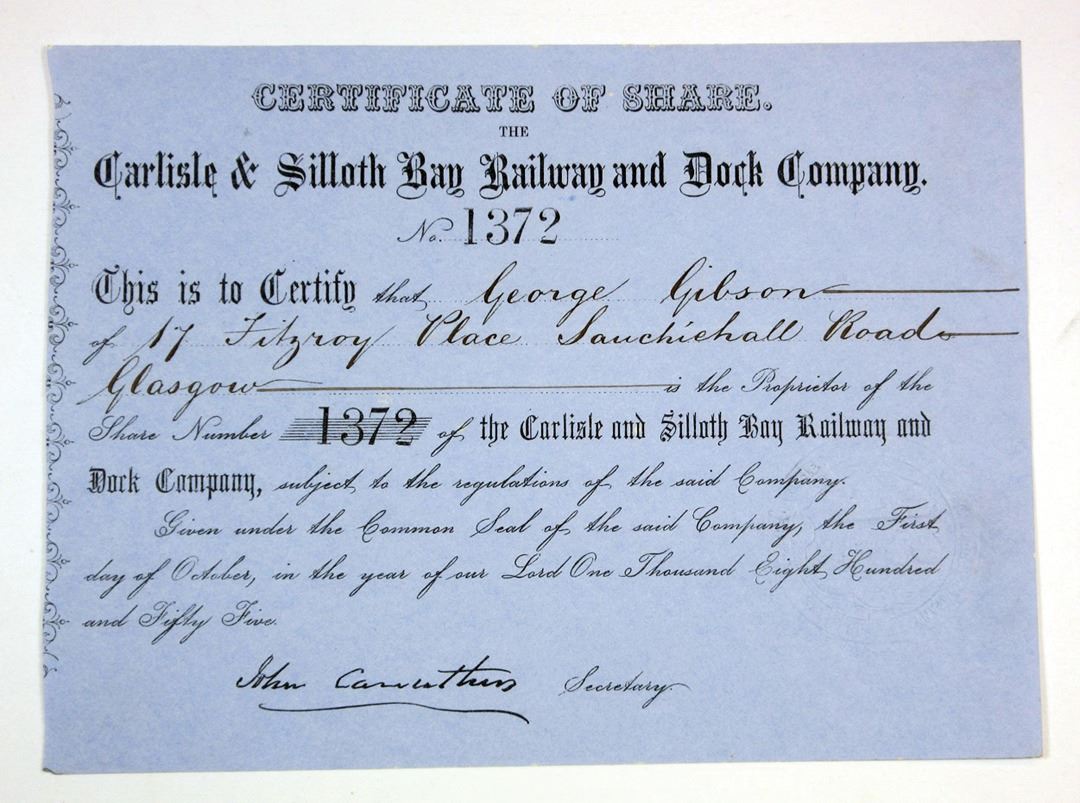 CERTIFICATE OF SHARE.
THE
Carlisle & Silloth Bay Railway and Dock Company.
No. 1372
This is to Certify that George Gibson
of 17 Fitzroy Place Sauchiehall Road
Glasgow is the Proprietor of the
Share Number 1372 of the Carlisle and Silloth Bay Railway and
Dock Company, subject to the regulations of the said Company.
Given under the Common Seal of the said Company, the First
day of October, in the year of our Lord One Thousand Eight Hundred
and Fifty Five.
John Carruthers Secretary.